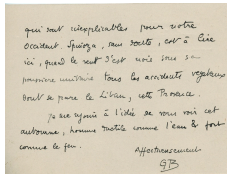 qui sont inexplicables pour notre
occident. Spinoza, sans doute, est à lire
ici, quand le vent s'est mis sous sa
première unitaire tous les accidents végétaux
dont se pare le Liban, cette Provence.
je me réjouis à l'idée de vous voir cet
automne, homme ductile comme l'eau & fort
comme le feu.
Affectueusement
GB